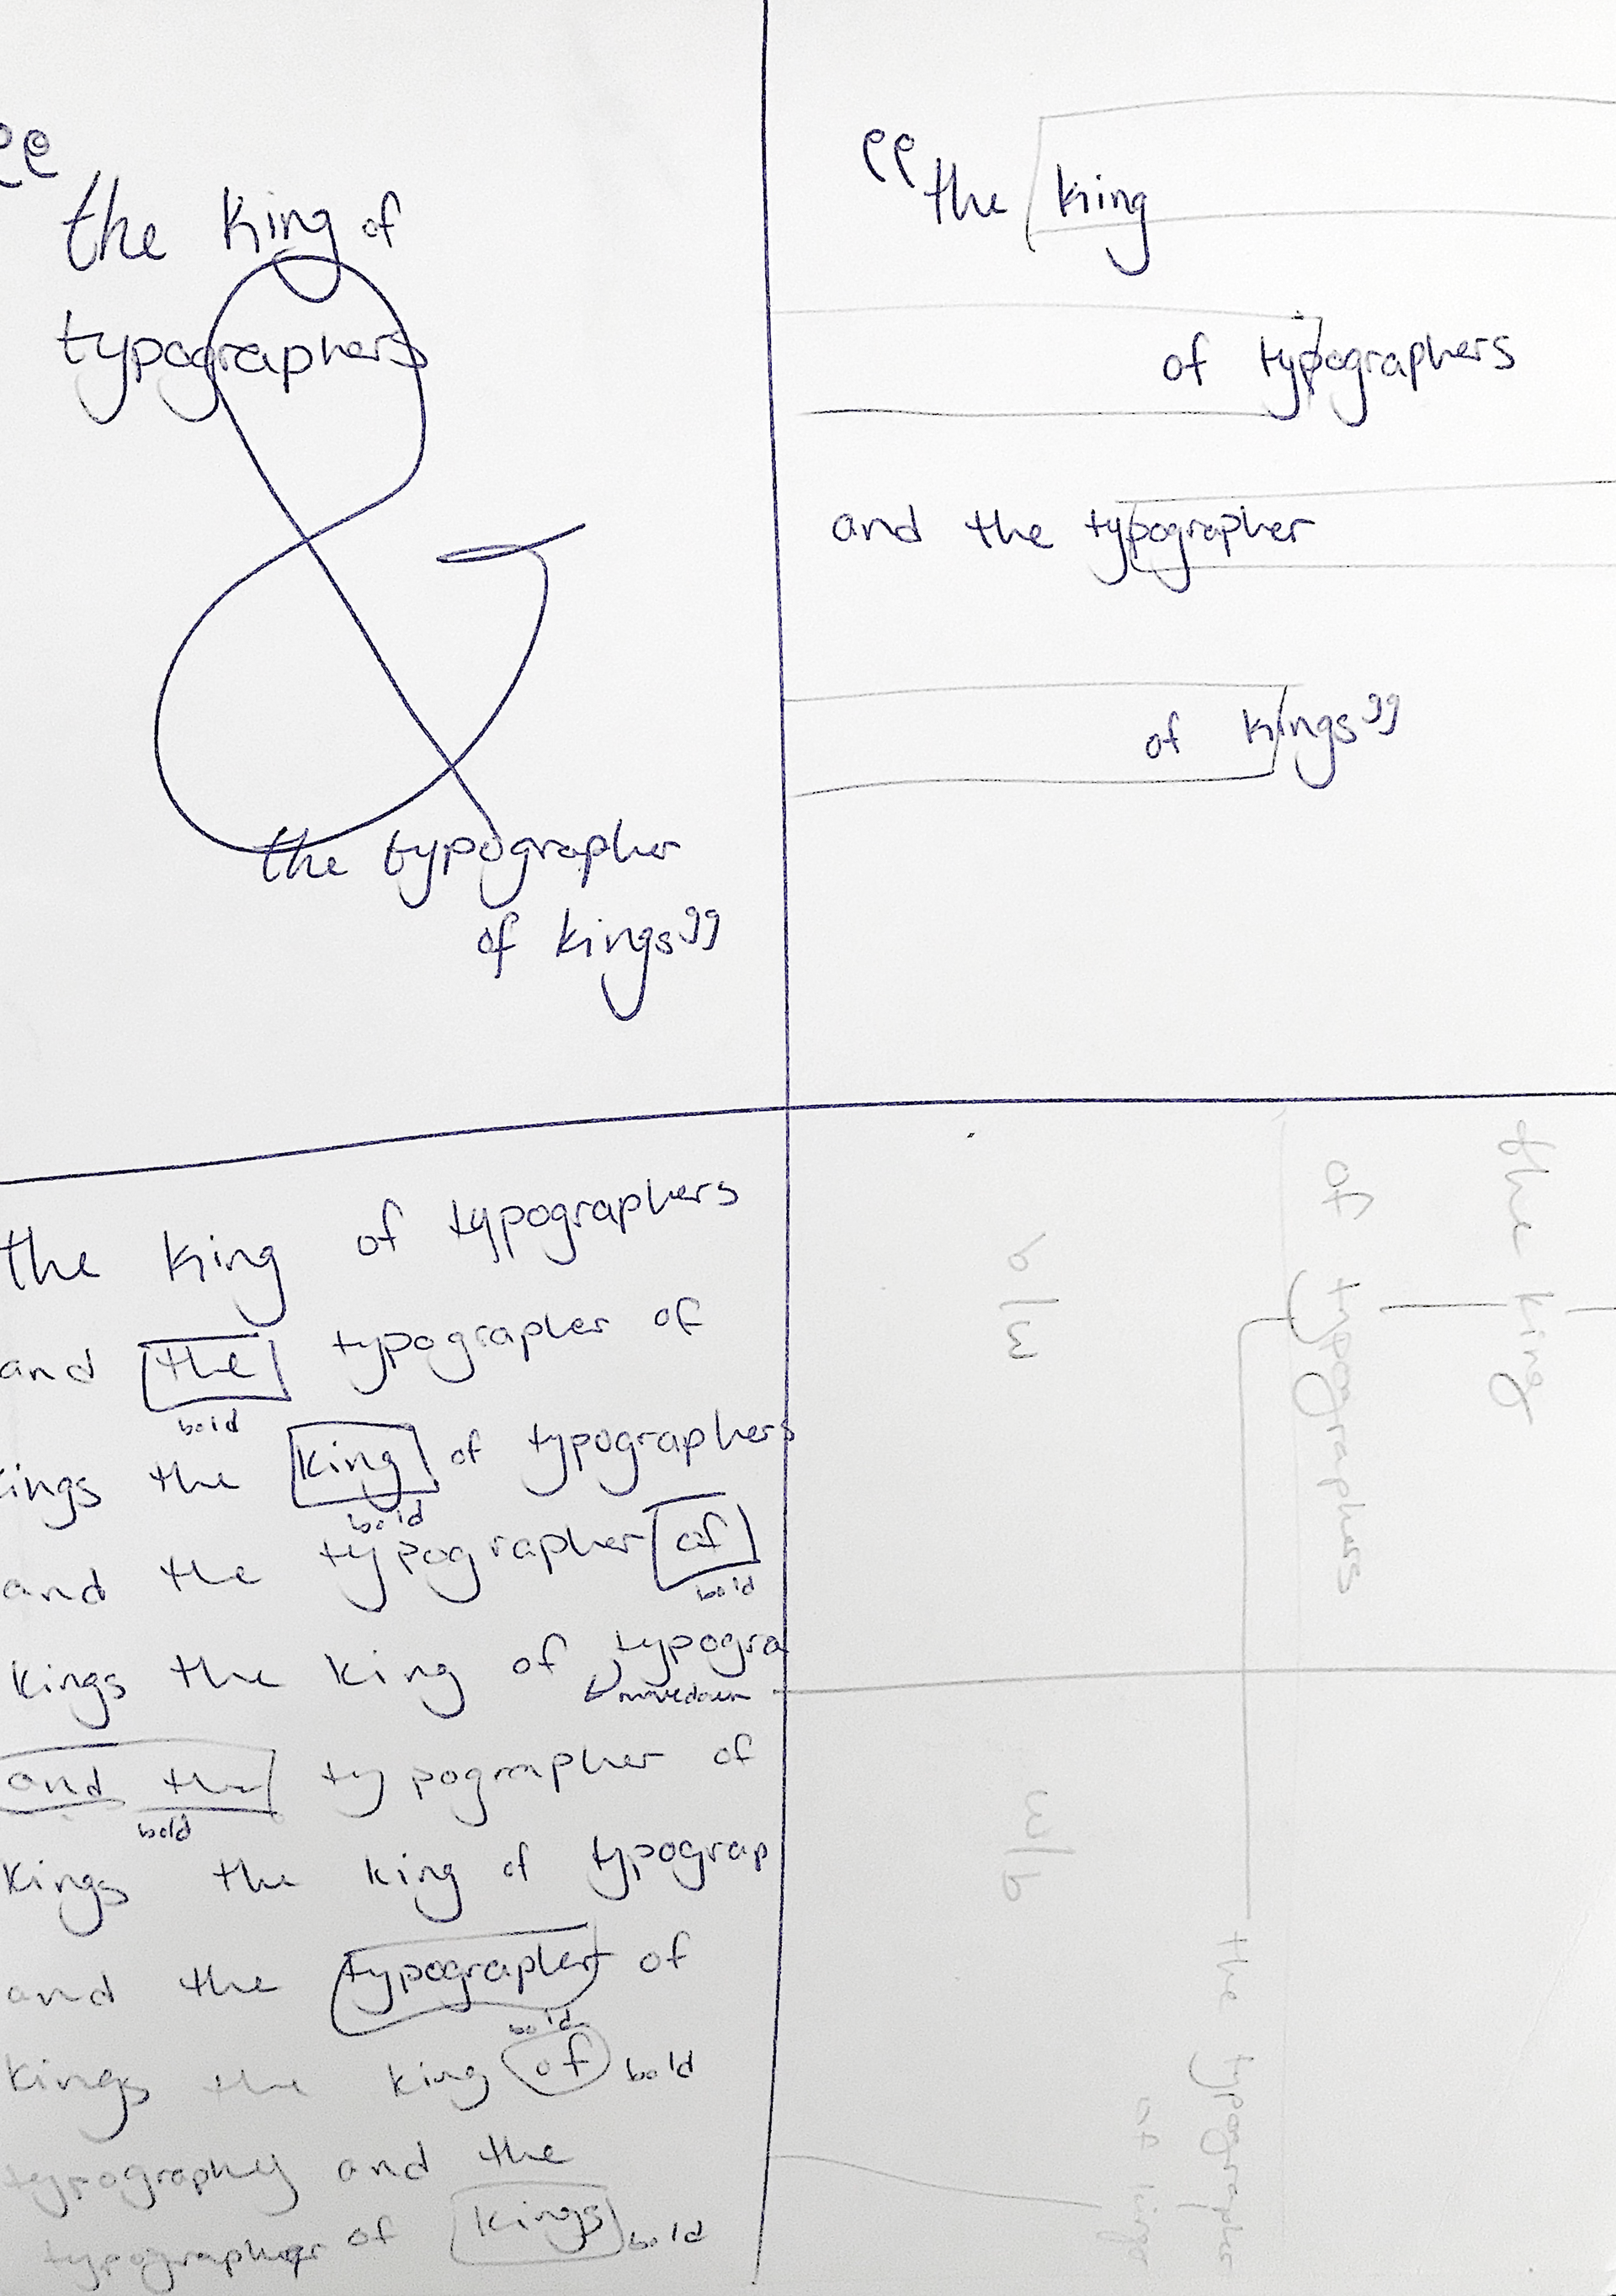 “ the king of
typographers
&
the typographer
of kings ”
“ the king
of typographers
and the typographer
of kings ”
the king of typographers
and the typographer of
bold
kings the king of typographers
bold
and the typographer of
bold
kings the king of typogra
move down
and the typographer of
bold
kings the king of typograp
and the typographer of
bold
kings the king of bold
typography and the
typographer of kings bold
the king
of typographers
b/w
w/b
the typographer
of kings